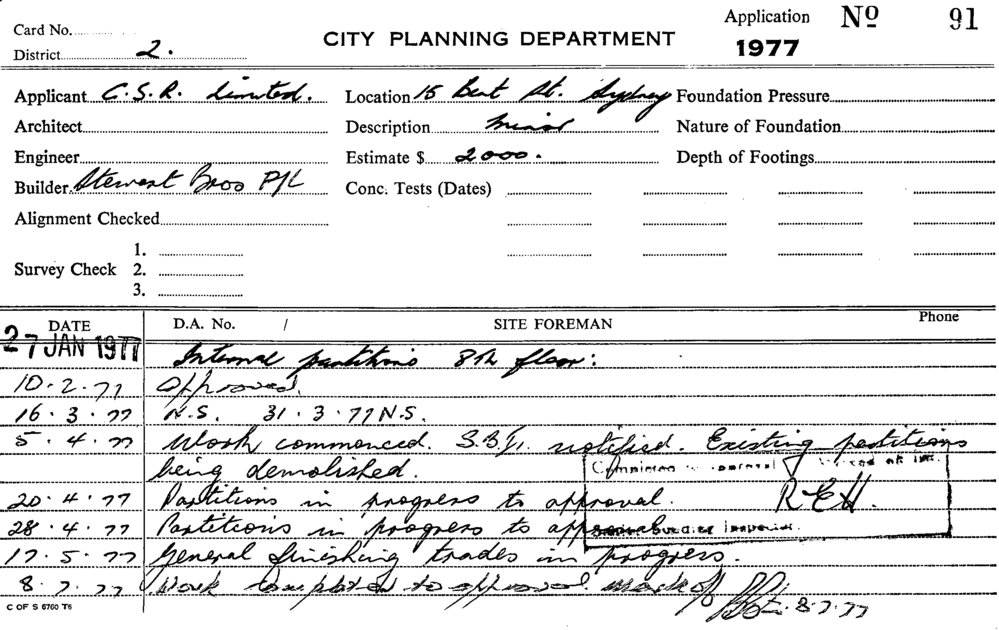 Card No.
District 2.
CITY PLANNING DEPARTMENT
Application No 91
1977
Applicant C.S.R. Limited. Location 15 Bent St. Sydney Foundation Pressure
Architect Description Minor Nature of Foundation
Engineer Estimate $ 2000. Depth of Footings
Builder Stewart Bros P/L Conc. Tests (Dates)
Alignment Checked
1.
Survey Check 2.
3.
DATE D.A. No. / SITE FOREMAN Phone
27 JAN 1977 Internal partitions 8th floor:
10.2.77 Approved.
16.3.77 N.S. 31.3.77 N.S.
5.4.77 Work commenced. notified. Existing partitions
being demolished.
20.4.77 Partitions in progress to approval. R.E.H.
28.4.77 Partitions in progress to approval
Building Inspector.
17.5.77 General finishing trades in progress.
8.7.77 Work completed to approval mark off 8.7.77
C OF S 6760 T6